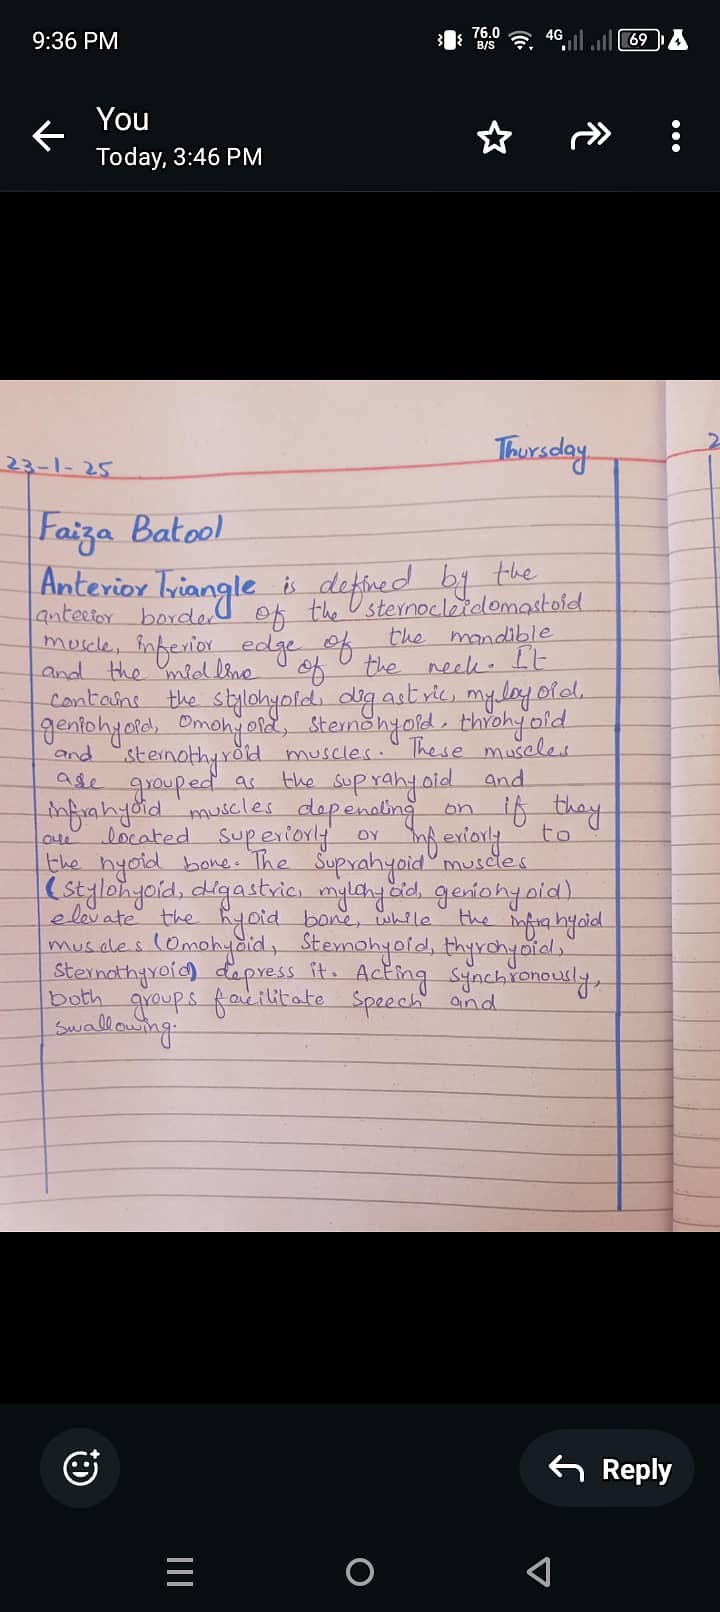 9:36 PM
76.0 B/S 4G 69
You
Today, 3:46 PM
23-1-25 Thursday
2
Faiza Batool
Anterior Triangle is defined by the
anterior border of the sternocleidomastoid
muscle, inferior edge of the mandible
and the midline of the neck. It
contains the stylohyoid, digastric, myloyoid,
geniohyoid, Omohyoid, sternohyoid, throhyoid
and sternothyroid muscles. These muscles
are grouped as the suprahyoid and
infrahyoid muscles depending on if they
are located superiorly or inferiorly to
the hyoid bone. The Suprahyoid muscles
(Stylohyoid, digastric, mylohyoid, geniohyoid)
elevate the hyoid bone, while the infrahyoid
muscles (Omohyoid, Sternohyoid, thyrohyoid,
Sternothyroid) depress it. Acting synchronously,
both groups facilitate Speech and
Swallowing.
Reply